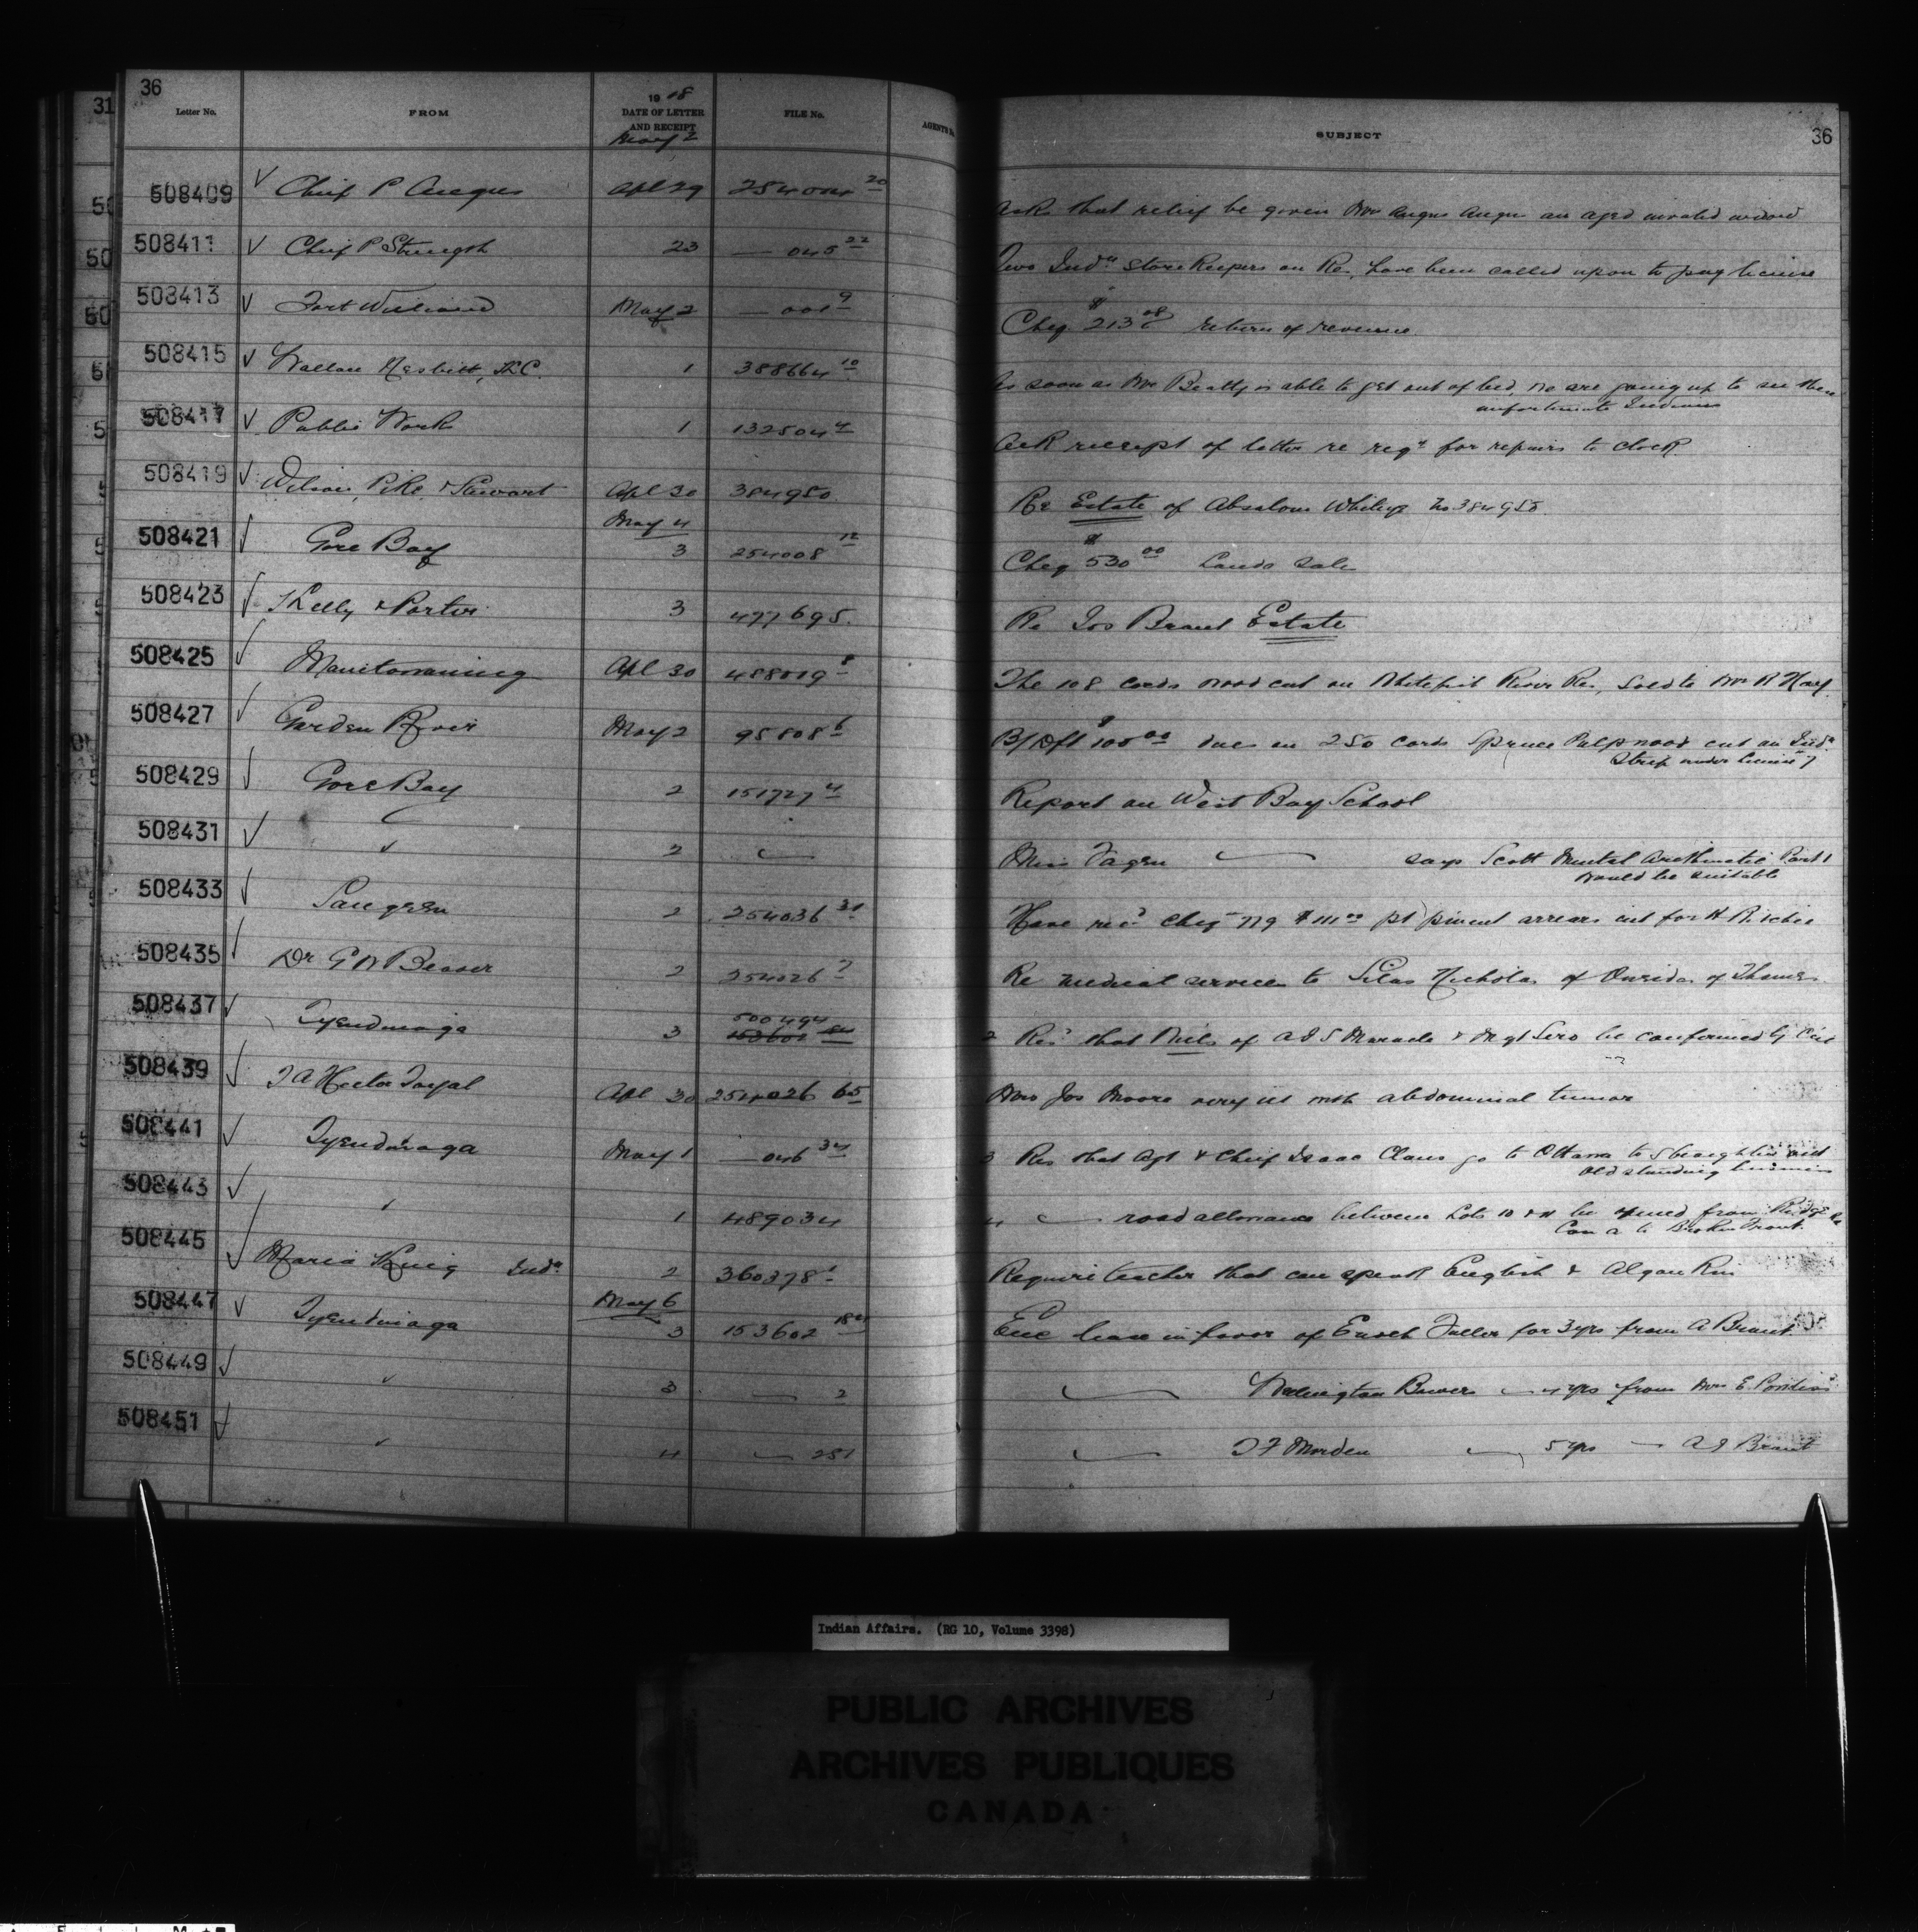 36
31
Letter No. FROM 1918 DATE OF LETTER AND RECEIPT FILE No. AGENTS SUBJECT 36
May 2
508409 Chief P Angus Apl 29 254004 20 Ask that relief be given Mrs Angus Angus an aged invalid widow
508411 Chief P Strength 23 — 045 22 Two Inda Store Keepers on Res, have been called upon to pay license
508413 Fort William May 2 — 001 9 Cheq $213 08 return of revenue
508415 Wallace Nesbitt, K.C. 1 388664 10 As soon as Mr Beatty is able to get out of bed, we are going up to see these
unfortunate Indians
508417 Public Work 1 132504 4 Ack receipt of letter re reqn for repairs to clock
508419 Wilson, Pike & Stewart Apl 30 384950 Re Estate of Absalom 384950
May 4
508421 Gore Bay 3 254008 12 Cheq $530 00 Lands Sale
508423 Kelly & Porter 3 477695. Re Jos Brant Estate
508425 Manitowaning Apl 30 488019 The 108 cords wood cut on Whitefish River Res, sold to Mr R
508427 Garden River May 2 95808 6 B/Dft $100 00 dues on 250 cords Spruce Pulpwood cut on Inda
Strip under license
508429 Gore Bay 2 151727 4 Report on West Bay School
508431 " 2 — Miss Fagen — says Scott Mental Arithmetic Part 1
would be suitable
508433 Saugeen 2 254036 31 Have recd cheq 779 pt pment arrears int for H Ritchie
508435 Dr G N Beaver 2 254026 7 Re medical services to Silas Nicholas of Oneidas of Thames
508437 Tyendinaga 3 500494 153601 2 Res that Wills of & Mgt Sero be confirmed by
508439 J A Hector Apl 30 254026 65 Mrs Jos Moore very ill with abdominal tumor
508441 Tyendinaga May 1 — 046 34 3 Res that Agt & Chief Isaac Claus go to Ottawa to straighten out
old standing business
508443 " 1 489034 4 — road allowance between Lots 10 & 11 be opened from Ridge Rd
Con a to Broken Front
508445 Maria King Inda 2 360378 1 Require teacher that can speak English & Algonkin
May 6
508447 Tyendinaga 3 153602 Enc lease in favor of Enoch Fuller for 3 yrs from A Brant
508449 " 3 — 2 — Wellington Bowers — 4 yrs from Mrs E
508451 " 4 — 251 — Morden — 5 yrs — A J Brant
Indian Affairs. (RG 10, Volume 3398)
PUBLIC ARCHIVES
ARCHIVES PUBLIQUES
CANADA